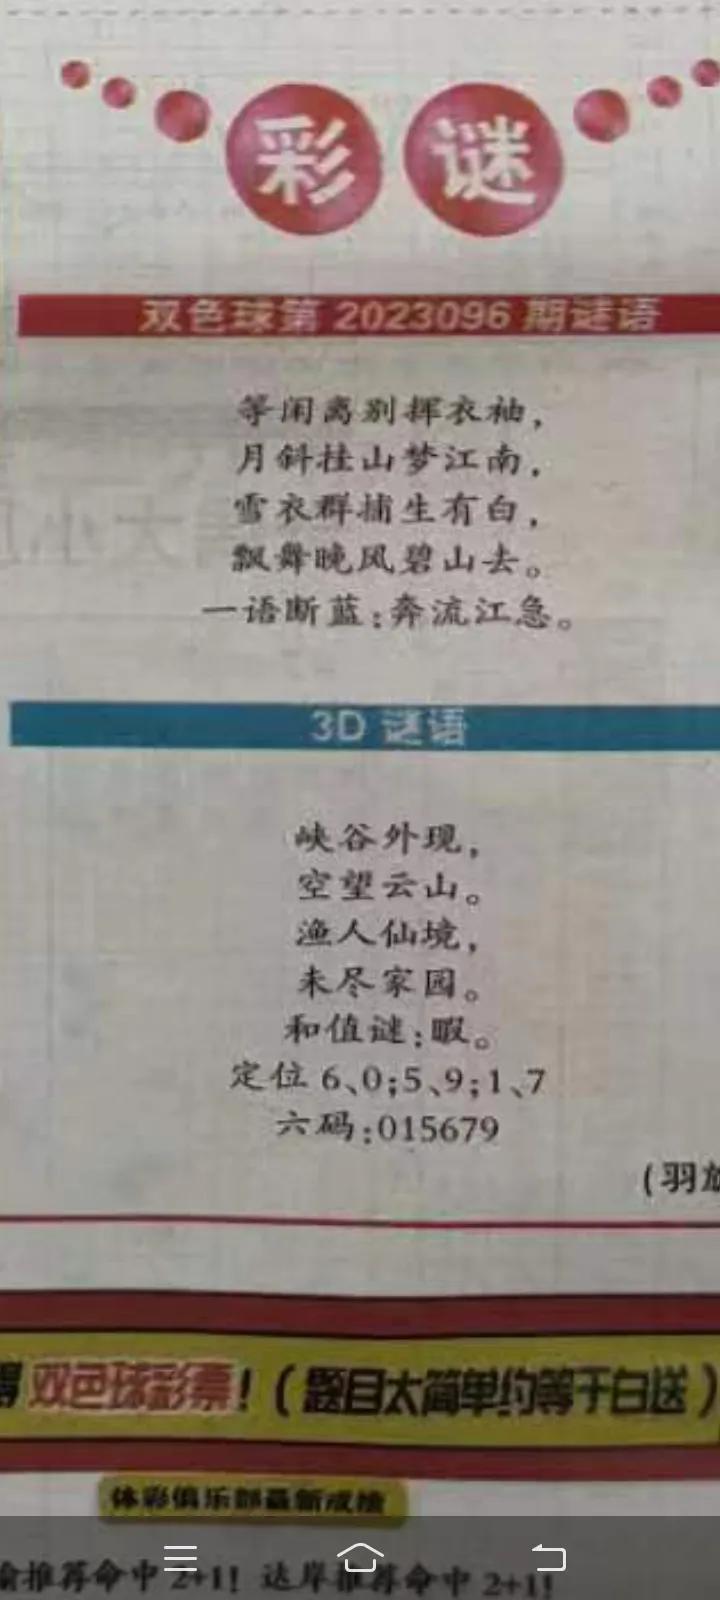 彩谜
双色球第2023096期谜语
等闲离别挥衣袖，
月斜挂山梦江南，
雪衣群捕生有白，
飘舞晚风碧山去。
一语断蓝：奔流江急。
3D 谜语
峡谷外现，
空望云山。
渔人仙境，
未尽家园。
和值谜：暇。
定位 6、0；5、9；1、7
六码：015679
（羽
双色球彩票！（题目太简单约等于白送）
体彩俱乐部最新成绩
推荐命中 2+1！达岸推荐命中 2+1！